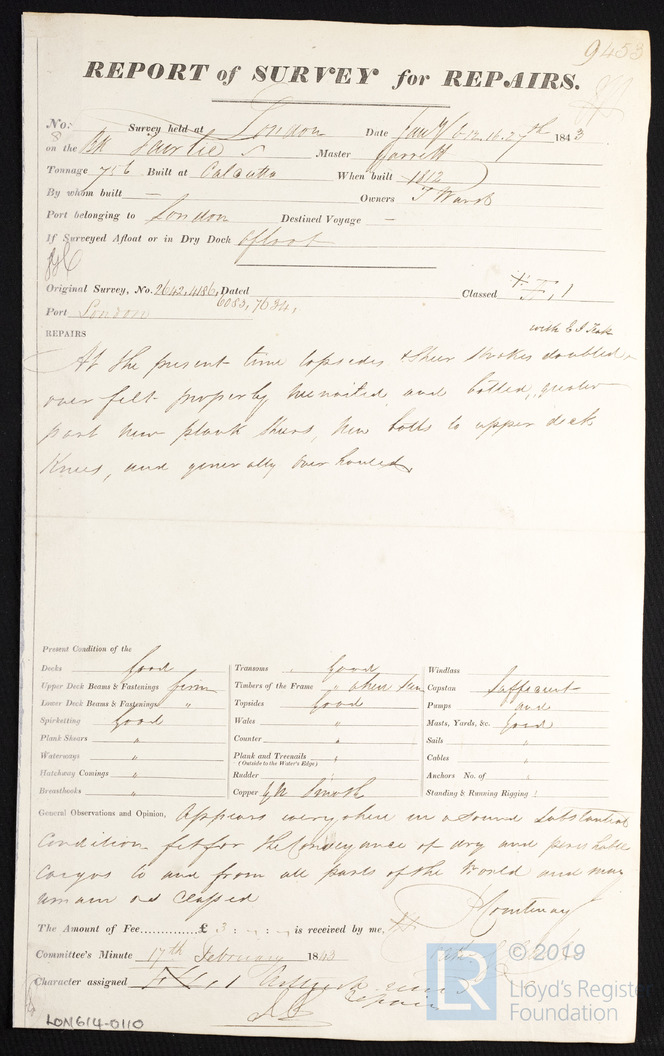 9453
REPORT of SURVEY for REPAIRS.
No. 8 Survey held at London Date Jany 6. 12. 16. 27th 1843
on the Bk Fairlie Master Garrett
Tonnage 756 Built at Calcutta When built 1812
By whom built — Owners T Ward
Port belonging to London Destined Voyage —
If Surveyed Afloat or in Dry Dock Afloat
Original Survey, No. 2642, 4186, Dated Classed
6083, 7634,
Port London
REPAIRS
with E I Teak
At the present time topsides & Sheer Strakes doubled
over felt properly and bolted, greater
part new plank Shears, New bolts to upper deck
Knees, and generally over hauled,
Present Condition of the
Decks Good
Upper Deck Beams & Fastenings firm
Lower Deck Beams & Fastenings "
Spirketting Good
Plank Shears "
Waterways "
Hatchway Comings "
Breasthooks "
Transoms Good
Timbers of the Frame " when seen
Topsides Good
Wales "
Counter "
Plank and Treenails "
(Outside to the Water's Edge)
Rudder
Copper
Windlass
Capstan Sufficient
Pumps and
Masts, Yards, &c. Good
Sails "
Cables "
Anchors No. of "
Standing & Running Rigging "
General Observations and Opinion, Appears everywhere in a sound Substantial
Condition fit for the Conveyance of dry and perishable
Cargos to and from all parts of the World and may
remain as Classed
P Courtenay
The Amount of Fee £ 3 : - : - is received by me,
Committee's Minute 17th February 1843
Character assigned
repairs
LON614-0110
© 2019
LR
Lloyd's Register
Foundation